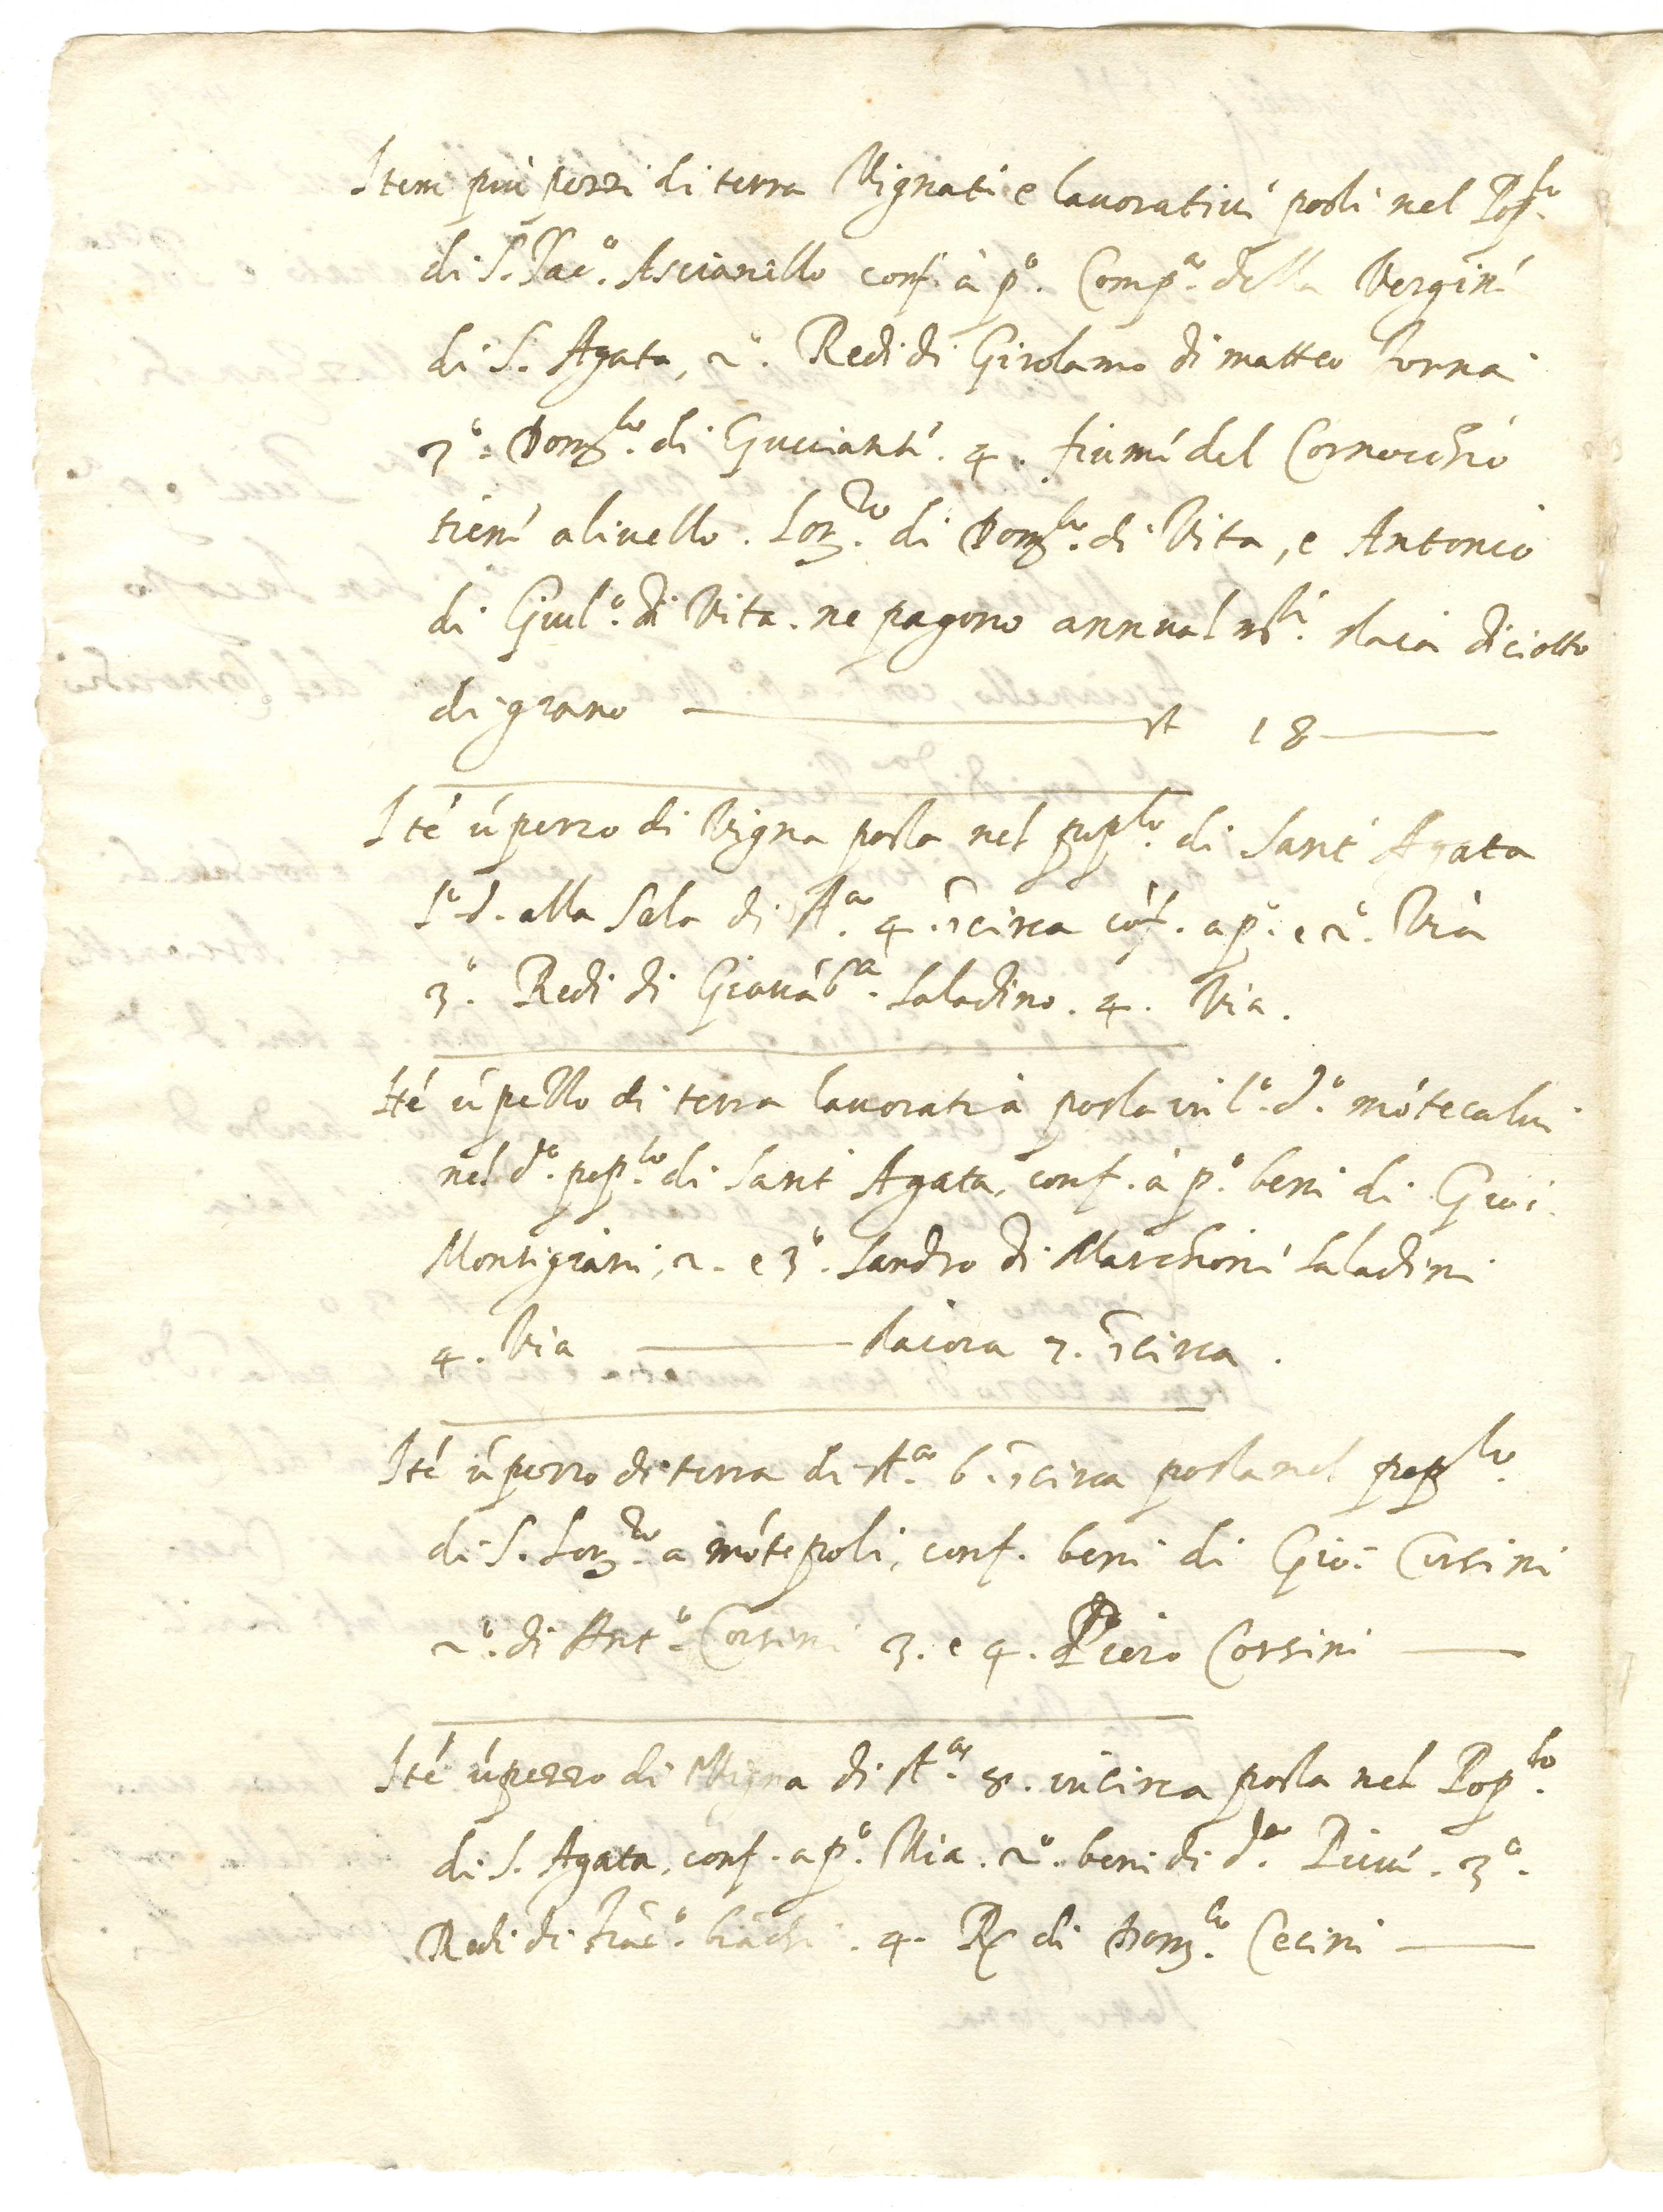 Item più pezzi di terra Vignati e lavorativi posti nel Pop.lo
di S. Iac.o Ascianello conf. à p.o Comp.a della Vergine
di S. Agata, 2.o Redi di Girolamo di matteo
3.o Dom.co di 4. fiume del Cornocchio
tiene a livello. Lor.zo di Dom.co di Vita, e Antonio
di Giul.o di Vita. ne pagono annualm.te staia diciotto
di grano st 18
Ité ú pezzo di Vigna posta nel pop.lo di Sant' Agata
l.o d. alla Sala di st.a 4. īcirca cóf. a p.o e 2.o Via
3.o Redi di Giová b.a Saladino. 4. Via.
Ité ú pezzo di terra lavoratia posta in l.o d.o mótecalvi
nel d.o pop.lo di Sant' Agata, conf. à p.o beni di Gio:
Montigiani, 2. e 3.o Sandro di Marchionne Saladini
4. Via staiora 7. īcirca.
Ité ú pezzo di terra di st.a 6. īcirca posta nel pop.lo
di S. Lor.zo a mótepoli, conf. beni di Gio: Corsini
2.o di Ant.o Corsini 3. e 4. Piero Corsini
Ité ú pezzo di Vigna di st.a 8. incirca posta nel Pop.lo
di S. Agata, conf. a p.o Via. 2.o beni di d.a Pieve. 3.o
Redi di 4. Rx di Dom.co Cecini